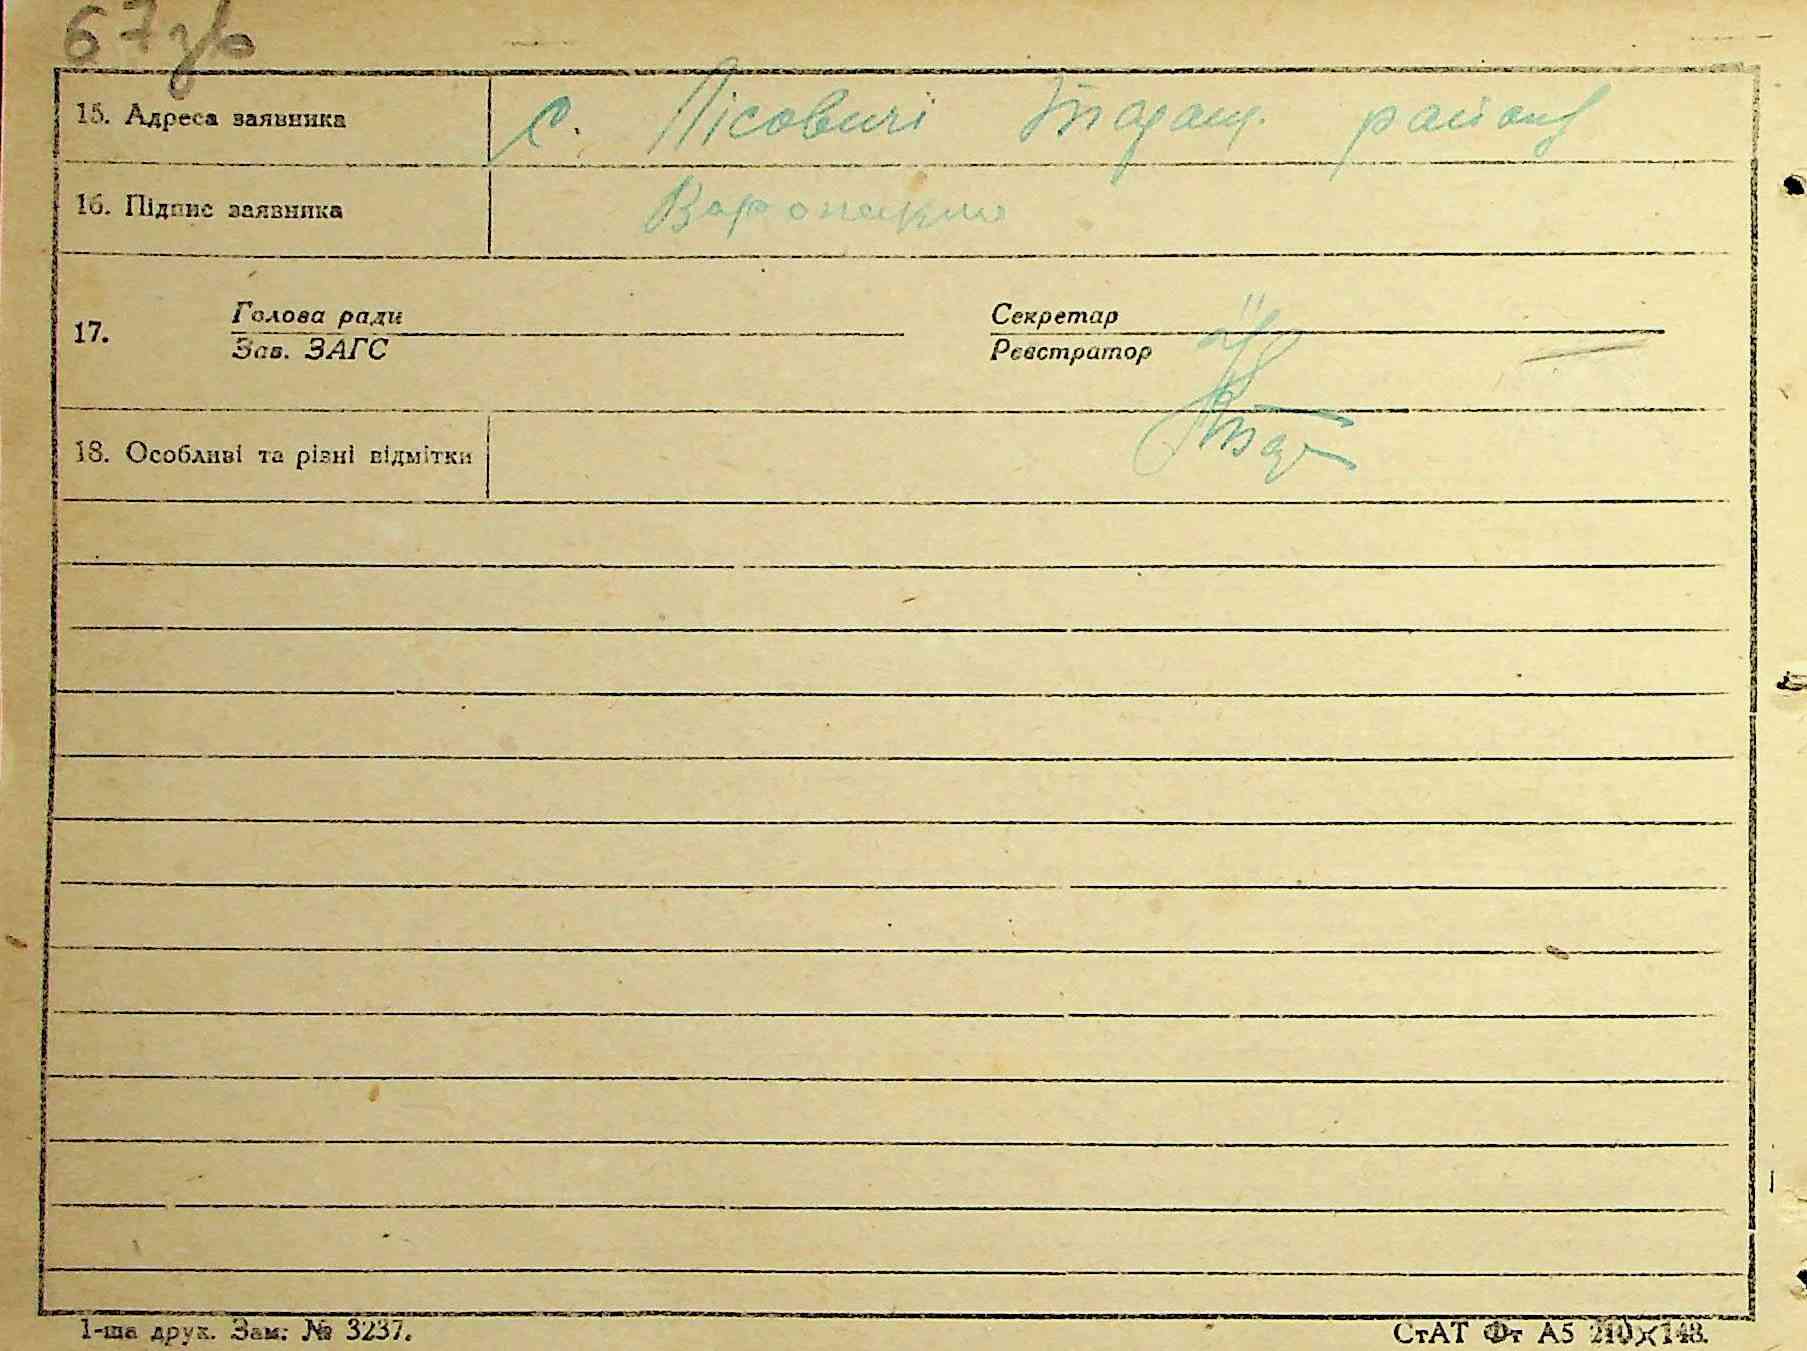 67 зв
15. Адреса заявника с. Лісовичі Таращ. району
16. Підпис заявника
Голова ради Секретар
17.
Зав. ЗАГС Реєстратор
18. Особливі та різні відмітки
1-ша друк. Зам. № 3237.
СтАТ Фт А5 210×148.